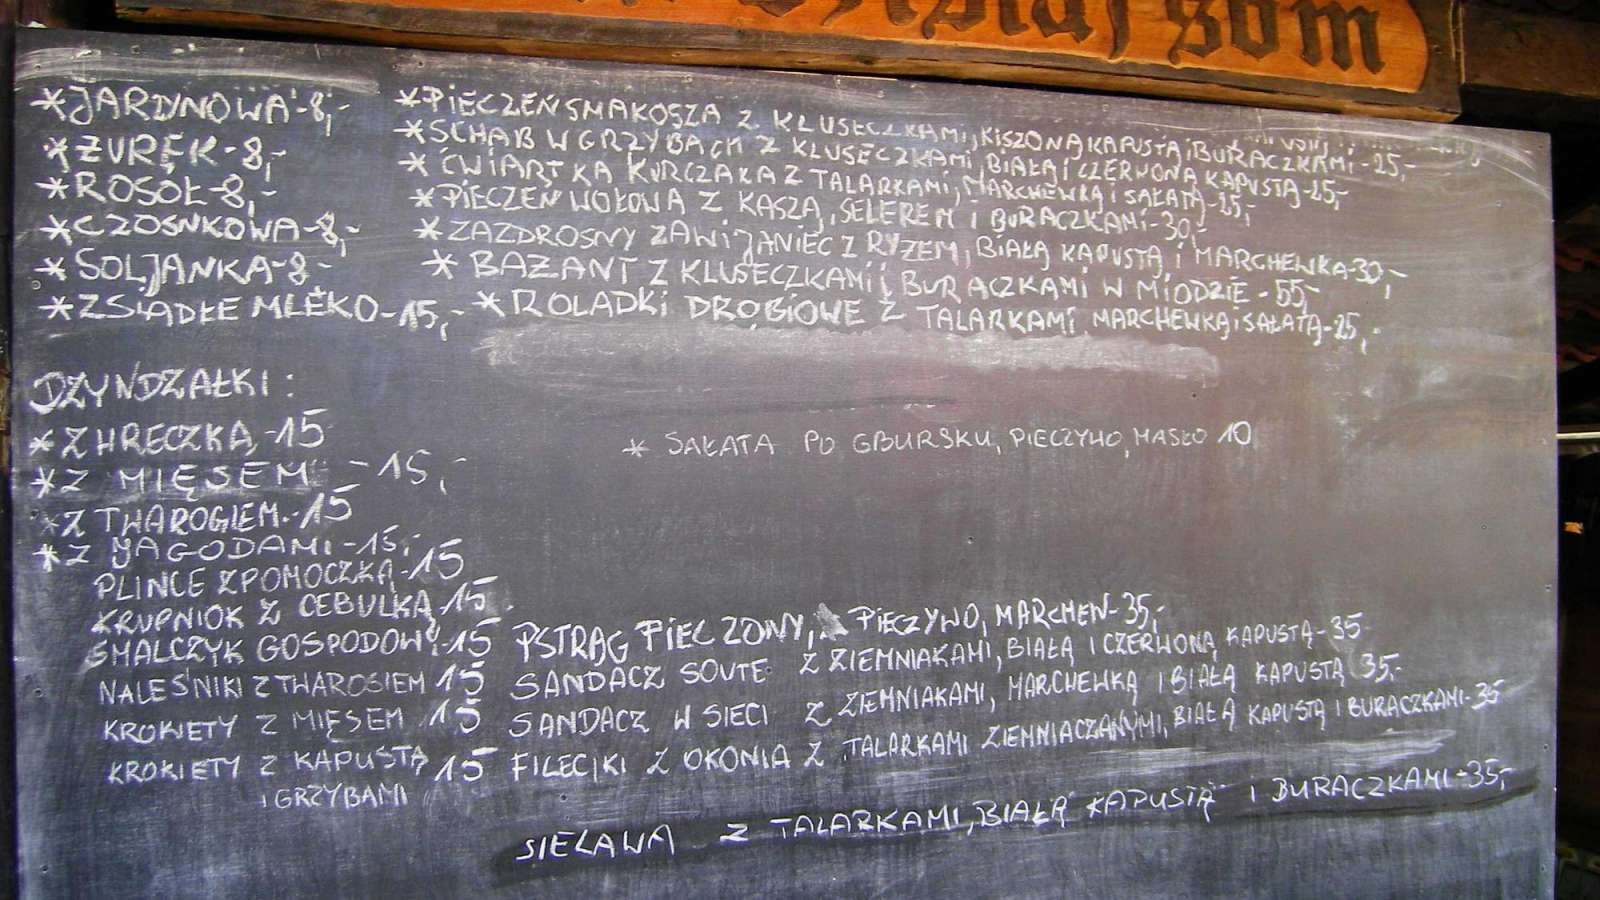 *JARDYNOWA-8,-
*ŻUREK-8,-
*ROSÓŁ-8,-
*CZOSNKOWA-8,-
*SOLJANKA-8-
*ZSIADŁE MLEKO-15,-
*PIECZEŃ SMAKOSZA Z KLUSECZKAMI, KISZONĄ KAPUSTĄ i BURACZKAMI-25,-
*SCHAB W GRZYBACH Z KLUSECZKAMI, BIAŁĄ i CZERWONĄ KAPUSTĄ-25,-
*ĆWIARTKA KURCZAKA Z TALARKAMI, MARCHEWKĄ i SAŁATĄ-25,-
*PIECZEŃ WOŁOWA Z KASZĄ, SELEREM i BURACZKAMI-30,-
*ZAZDROSNY ZAWIJANIEC Z RYŻEM, BIAŁĄ KAPUSTĄ i MARCHEWKĄ-30,-
*BAŻANT Z KLUSECZKAMI i BURACZKAMI W MIODZIE-55,-
*ROLADKI DROBIOWE Z TALARKAMI MARCHEWKĄ i SAŁATĄ-25,-
DZYNDZAŁKI:
*Z HRECZKĄ-15
*Z MIĘSEM -15,-
*Z TWAROGIEM-15
*Z JAGODAMI-15,-
PLINCE Z POMOCZKĄ-15
KRUPNIOK Z CEBULKĄ-15
SMALCZYK GOSPODOWY-15
NALEŚNIKI Z TWAROGIEM 15
KROKIETY Z MIĘSEM 15
KROKIETY Z KAPUSTĄ 15
i GRZYBAMI
* SAŁATA PO GBURSKU, PIECZYWO, MASŁO 10
PSTRĄG PIECZONY, PIECZYWO, MARCHEW-35,-
SANDACZ SOUTE Z ZIEMNIAKAMI, BIAŁĄ I CZERWONĄ KAPUSTĄ-35
SANDACZ W SIECI Z ZIEMNIAKAMI, MARCHEWKĄ I BIAŁĄ KAPUSTĄ 35,-
FILECIKI Z OKONIA Z TALARKAMI ZIEMNIACZANYMI, BIAŁĄ KAPUSTĄ I BURACZKAMI-35
SIELAWA Z TALARKAMI, BIAŁĄ KAPUSTĄ I BURACZKAMI-35,-